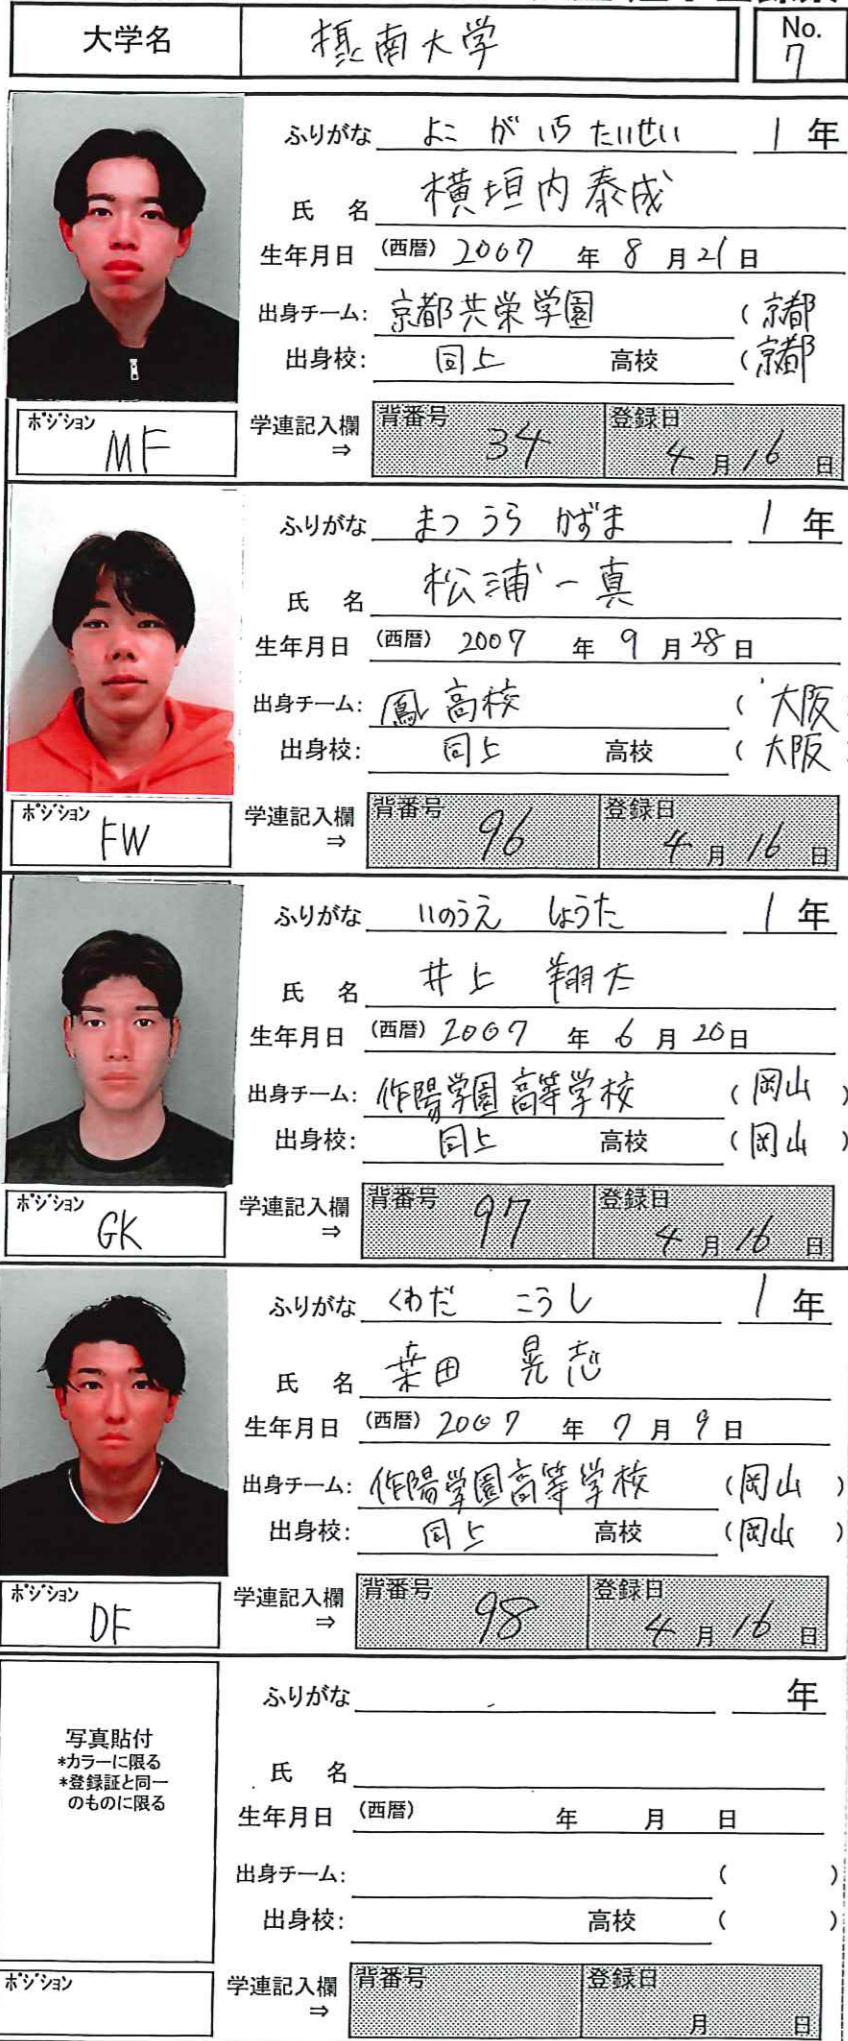 大学名 摂南大学 No. 7
ふりがな よこがいちたいせい 1年
氏 名 横垣内泰成
生年月日 (西暦) 2007 年 8 月 21 日
出身チーム: 京都共栄学園 (京都
出身校: 同上 高校 (京都
ポジション MF 学連記入欄 ⇒ 背番号 34 登録日 4月16日
ふりがな まつうら かずま 1年
氏 名 松浦一真
生年月日 (西暦) 2007 年 9 月 28 日
出身チーム: 鳳高校 (大阪
出身校: 同上 高校 (大阪
ポジション FW 学連記入欄 ⇒ 背番号 96 登録日 4月16日
ふりがな いのうえ しょうた 1年
氏 名 井上 翔太
生年月日 (西暦) 2007 年 6 月 20日
出身チーム: 作陽学園高等学校 (岡山)
出身校: 同上 高校 (岡山)
ポジション GK 学連記入欄 ⇒ 背番号 97 登録日 4月16日
ふりがな くわだ こうし 1年
氏 名 桒田 晃志
生年月日 (西暦) 2007 年 7 月 9 日
出身チーム: 作陽学園高等学校 (岡山)
出身校: 同上 高校 (岡山)
ポジション DF 学連記入欄 ⇒ 背番号 98 登録日 4月16日
ふりがな 年
写真貼付
*カラーに限る
*登録証と同一
のものに限る
氏 名
生年月日 (西暦) 年 月 日
出身チーム: ( )
出身校: 高校 ( )
ポジション 学連記入欄 ⇒ 背番号 登録日 月 日